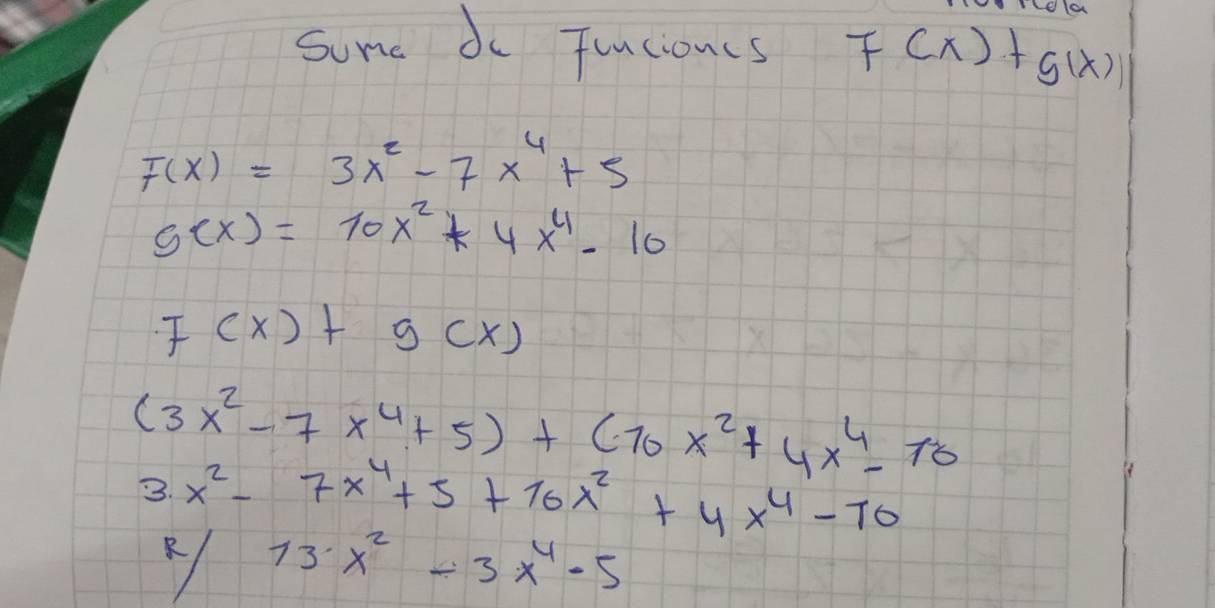 Suma de Funciones F(x) + g(x)
F(x) = 3x² - 7x⁴ + 5
g(x) = 10x² + 4x⁴ - 10
F(x) + g(x)
(3x² - 7x⁴ + 5) + (10x² + 4x⁴ - 10
3x² - 7x⁴ + 5 + 10x² + 4x⁴ - 10
R/ 13x² - 3x⁴ - 5